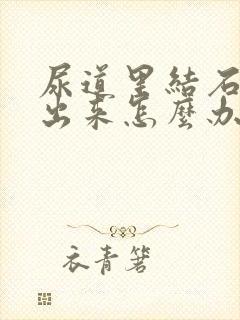 尿道里結石
出来怎麼办
衣青箬